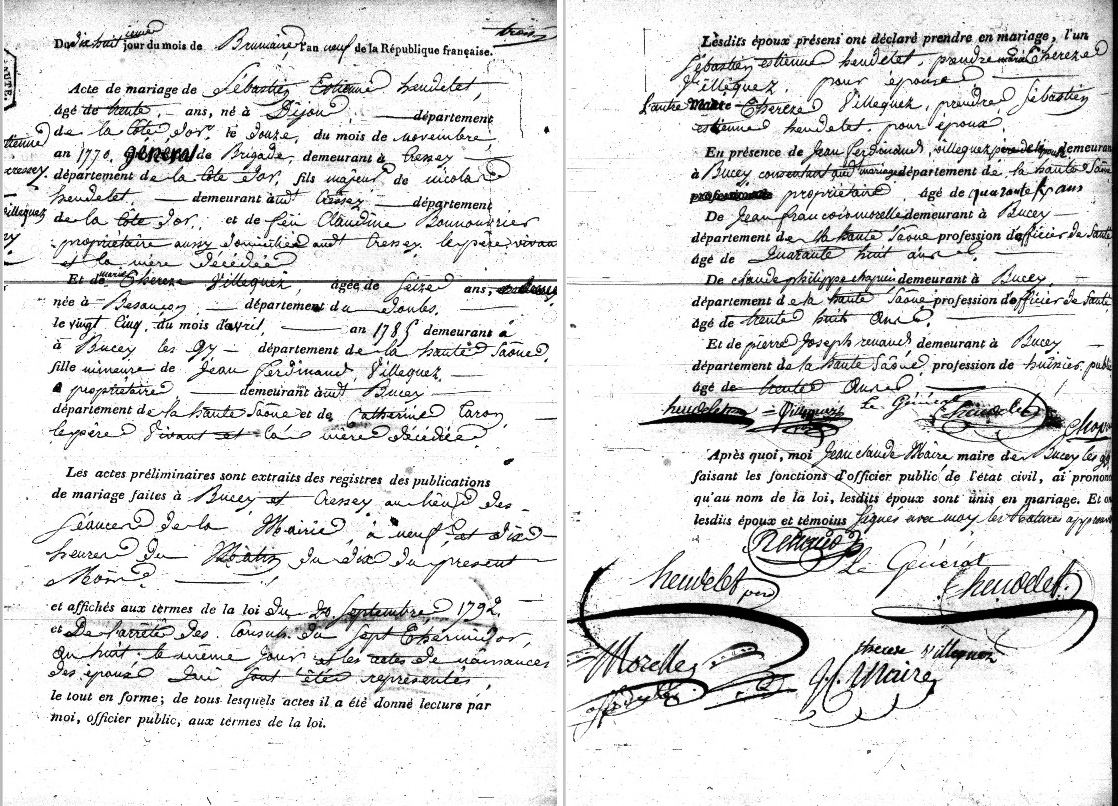 Du dix huit ième jour du mois de Brumaire, l'an neuf de la République française.
Acte de mariage de Sébastien Estienne heudelet,
âgé de trente, ans, né à Dijon département
de la Côte d'or, le douze, du mois de novembre,
an 1770, général de Brigade, demeurant à Cressey
département de la Côte d'or, fils majeur de nicolas
heudelet demeurant audt Cressey département
de la Côte d'or, et de feu Claudine
propriétaire aussy domicilié audt Cressey. le père vivan
et la mère décédée
Et de marie Thereze Villequez, âgée de Seize ans,
née à Besançon, département du Doubs,
le vingt Cinq, du mois d'avril, an 1785 demeurant à
à Bucey les Gy département de la haute Saône,
fille mineure de Jean Ferdinand Villequez
propriétaire demeurant audt Bucey
département de la haute Saône et de Catherine Caron,
le père Vivant et la mère décédée
Les actes préliminaires sont extraits des registres des publications
de mariage faites à Bucey et Cressey au lieu des
Séances de la Mairie, à neuf et dix
heures du Matin du dix du present
Mois
et affichés aux termes de la loi du 20 Septembre, 1792,
et De l'arrêté des Consuls du Sept Thermidor
an huit le même jour et les actes de naissances
des époux qui sont étés representés,
le tout en forme; de tous lesquels actes il a été donné lecture par
moi, officier public, aux termes de la loi.
Lesdits époux présens ont déclaré prendre en mariage, l'un
Sébastien estienne heudelet, prendre marie Thereze
Villequez pour épouse
L'autre Marie Thereze Villequez, prendre Sébastien
estienne heudelet pour époux
En présence de Jean Ferdinand, villequez père de demeurant
à Bucey consentant audt mariage département de la haute Saône
profession propriétaire âgé de quarante ans
De Jean francois morelle demeurant à Bucey
département de la haute Saône profession d'officier de Santé
âgé de Quarante huit ans
De claude philippe demeurant à Bucey
département de la haute Saône profession d'officier de Santé
âgé de trente huit ans.
Et de pierre Joseph renaud demeurant à Bucey
département de la haute Saône, profession de huissier, publi
âgé de trente ans
heudelet Villequez Le Général heudelet
Après quoi, moi Jean claude Maire maire de Bucey les gy
faisant les fonctions d'officier public de l'état civil, ai prononc
qu'au nom de la loi, lesdits époux sont unis en mariage. Et on
lesdits époux et témoins Signés avec moy, les Ratures approuv
Renaud
heudelet père Le Général heudelet
Morelle therese villequez
J C Maire